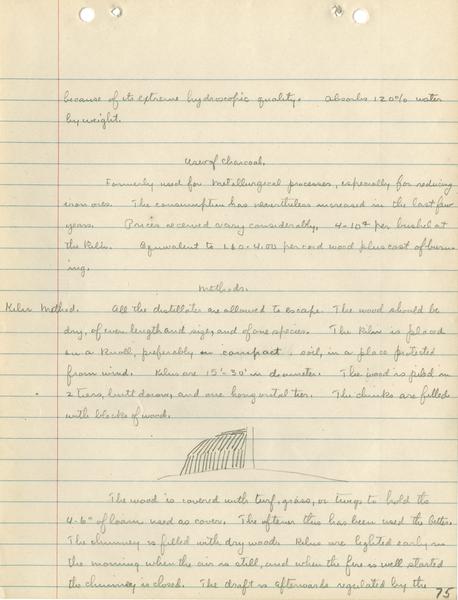 because of its extreme hydroscopic quality. Absorbs 120% water
by weight.
Uses of Charcoal.
Formerly used for metallurgical processes, especially for reducing
iron ores. The consumption has nevertheless increased in the last few
years. Prices received vary considerably, 4-10¢ per bushel at
the kiln. Equivalent to 1.60-4.00 per cord wood plus cost of burn
ing.
Methods.
Kiln Method. All the distillates are allowed to escape. The wood should be
dry, of even length and size, and of one species. The kiln is placed
on a knoll, preferably on compact soil, in a place protected
from wind. Kilns are 15'-30' in diameter. The wood is piled in
2 tiers, butt down, and one horizontal tier. The chinks are filled
with blocks of wood.
The wood is covered with turf, grass, or twigs to hold the
4-6" of loam used as cover. The oftener this has been used the better.
The chimney is filled with dry wood. Kilns are lighted early in
the morning when the air is still, and when the fire is well started
the chimney is closed. The draft is afterwards regulated by the
75